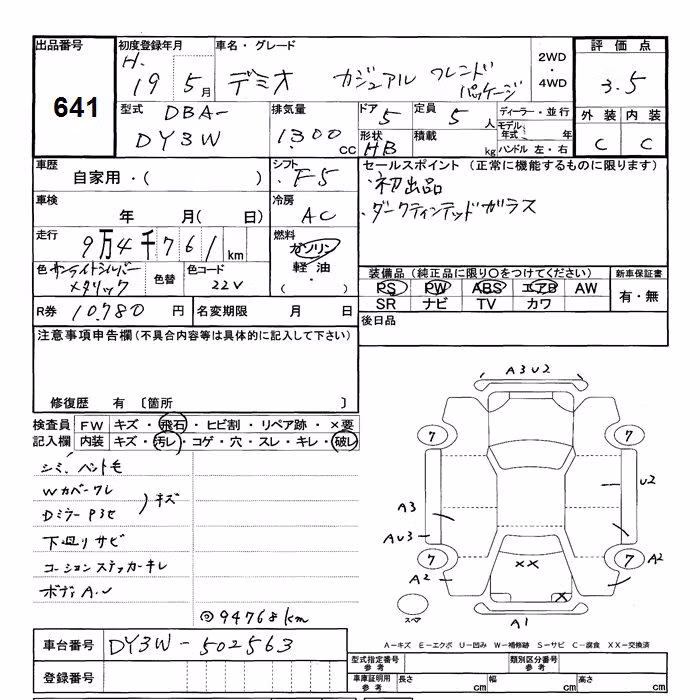 出品番号
641
初度登録年月
H.
19 5月
車名・グレード
デミオ カジュアル フレンド
パッケージ
2WD
・
4WD
評価点
3.5
外装 内装
C C
型式 DBA-
DY3W
排気量
1300 cc
ドア 5
形状 HB
定員 5人
積載 kg
ディーラー・並行
モデル年式 年
ハンドル 左・右
車歴
自家用・( )
シフト
F5
セールスポイント (正常に機能するものに限ります)
・初出品
・ダークティンテッドガラス
車検
年 月( 日)
冷房
AC
走行
9万4千761km
燃料
ガソリン
軽油・
( )
色 サンライトシルバー
メタリック
色替
色コード
22V
装備品(純正品に限り○をつけてください)
PS PW ABS エアB AW
SR ナビ TV カワ
新車保証書
有・無
R券 10,780円
名変期限 月 日
後日品
注意事項申告欄(不具合内容等は具体的に記入して下さい)
修復歴 有 〔箇所 〕
検査員
記入欄
FW キズ・飛石・ヒビ割・リペア跡・×要
内装 キズ・汚レ・コゲ・穴・スレ・キレ・破レ
シミ、ペット毛
Wカバーワレ
Dミラー P3セ
キズ
下廻リサビ
コーションステッカーキレ
ボディA.U
◎94768km
A3U2
7
7
U2
A3
AU3
7
7
A2
A2
××
×
スペア
A1
A－キズ E－エクボ U－凹み W－補修跡 S－サビ C－腐食 XX－交換済
車台番号 DY3W-502563
登録番号
型式指定番号
参考
類別区分番号
参考
車庫証明用
参考
長さ cm 幅 cm 高さ cm